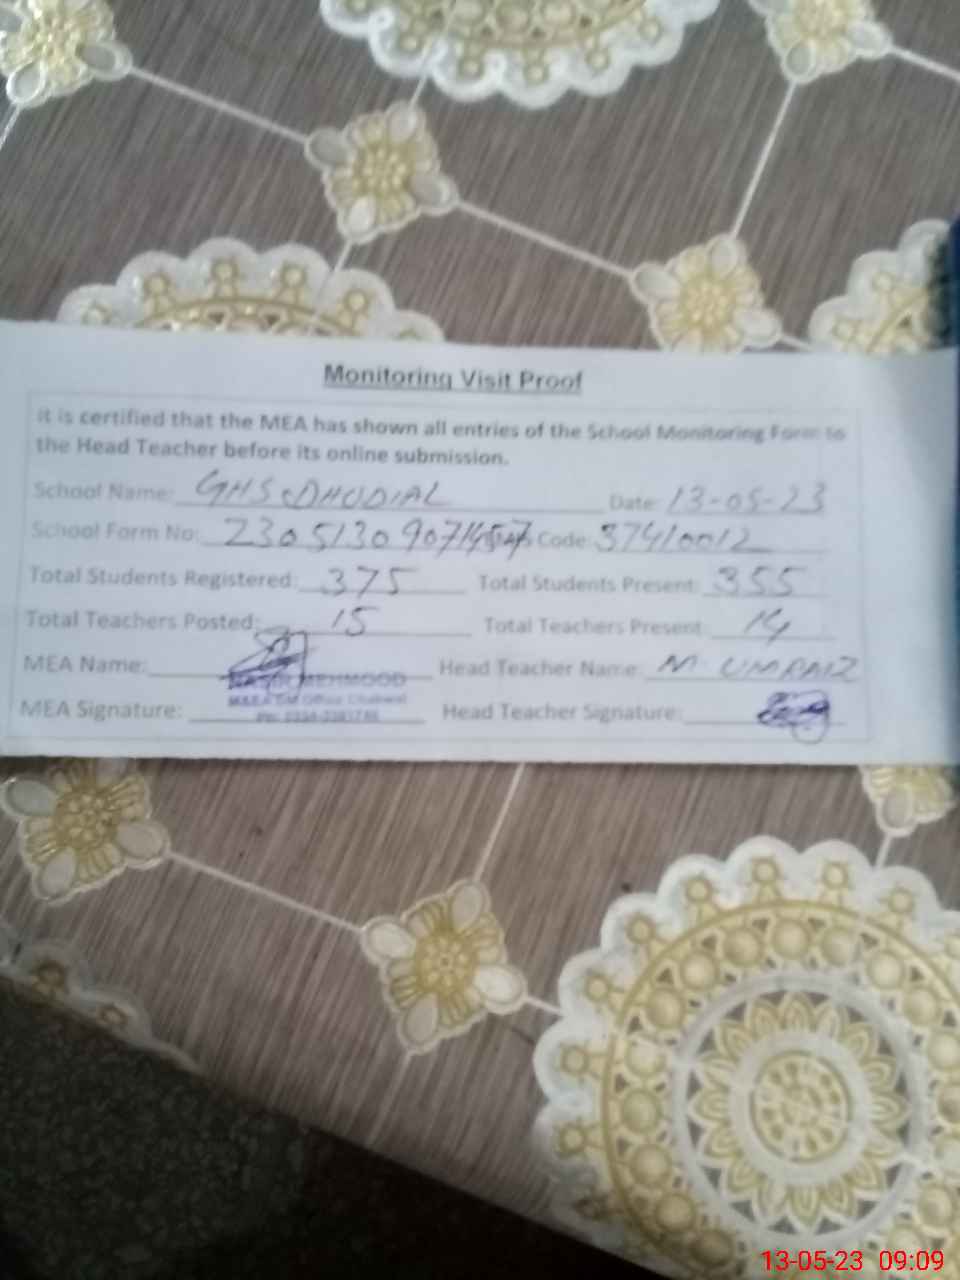 Monitoring Visit Proof
It is certified that the MEA has shown all entries of the School Monitoring Form to
the Head Teacher before its online submission.
School Name: GHS DHUDIAL Date: 13-05-23
School Form No: Code: 37410012
Total Students Registered: 375 Total Students Present: 355
Total Teachers Posted: 15 Total Teachers Present: 14
MEA Name: Head Teacher Name: M. UMRAIZ
NASIR MEHMOOD
MEA Signature: Head Teacher Signature:
13-05-23 09:09